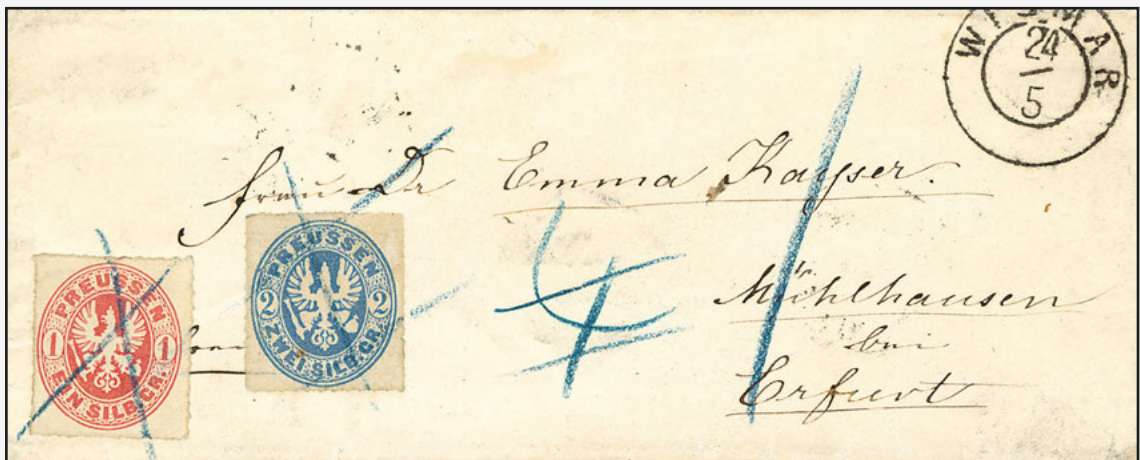 WISMAR
24
5
Frau Dr Emma Kayser.
Mühlhausen
bei
Erfurt
PREUSSEN
1 1
EIN SILB.GR.
PREUSSEN
2 2
ZWEI SILB.GR.
4